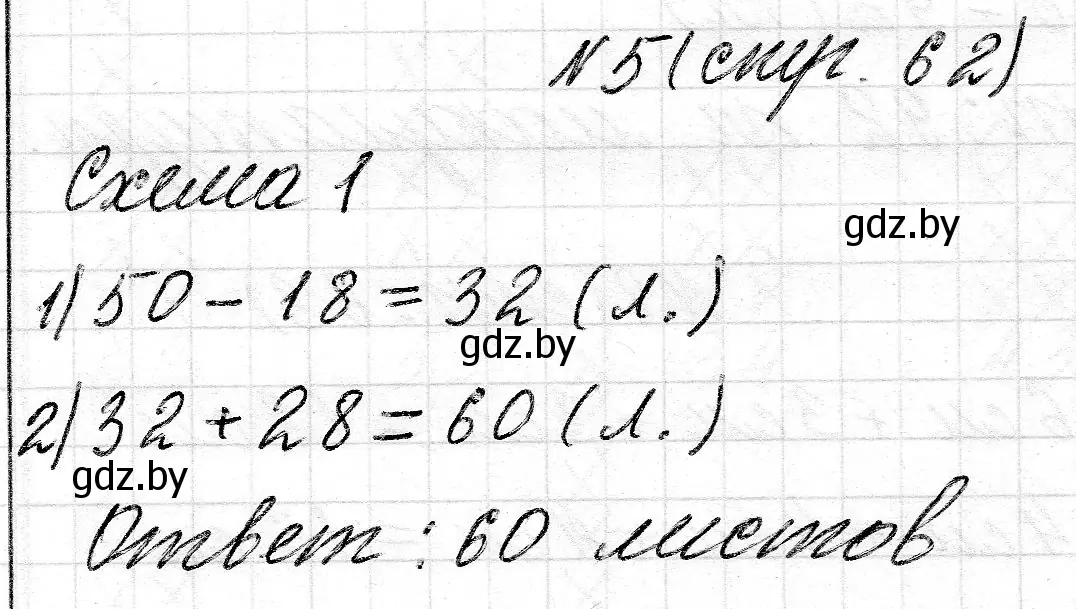 №5 (стр. 62)
Схема 1
gdz.by
1) 50 - 18 = 32 (л.)
gdz.by
2) 32 + 28 = 60 (л.)
gdz.by
Ответ: 60 листов